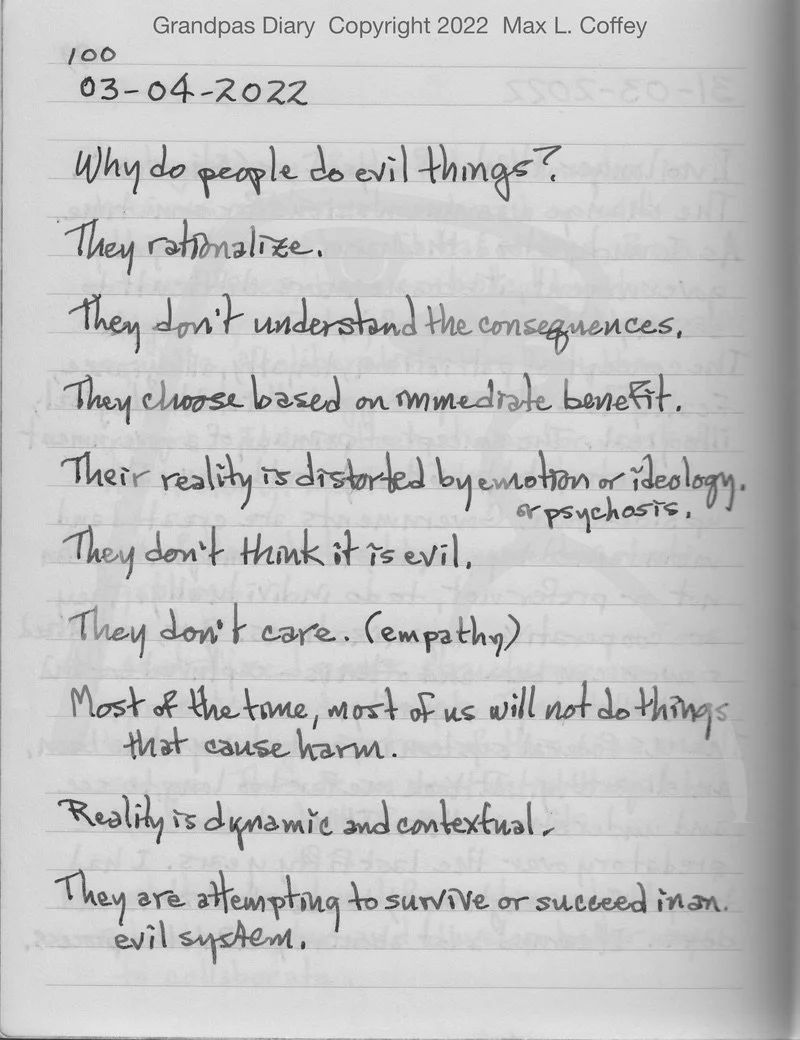 Grandpas Diary Copyright 2022 Max L. Coffey
100
03-04-2022
Why do people do evil things?
They rationalize.
They don't understand the consequences.
They choose based on immediate benefit.
Their reality is distorted by emotion or ideology.
or psychosis.
They don't think it is evil.
They don't care. (empathy)
Most of the time, most of us will not do things
that cause harm.
Reality is dynamic and contextual.
They are attempting to survive or succeed in an
evil system.